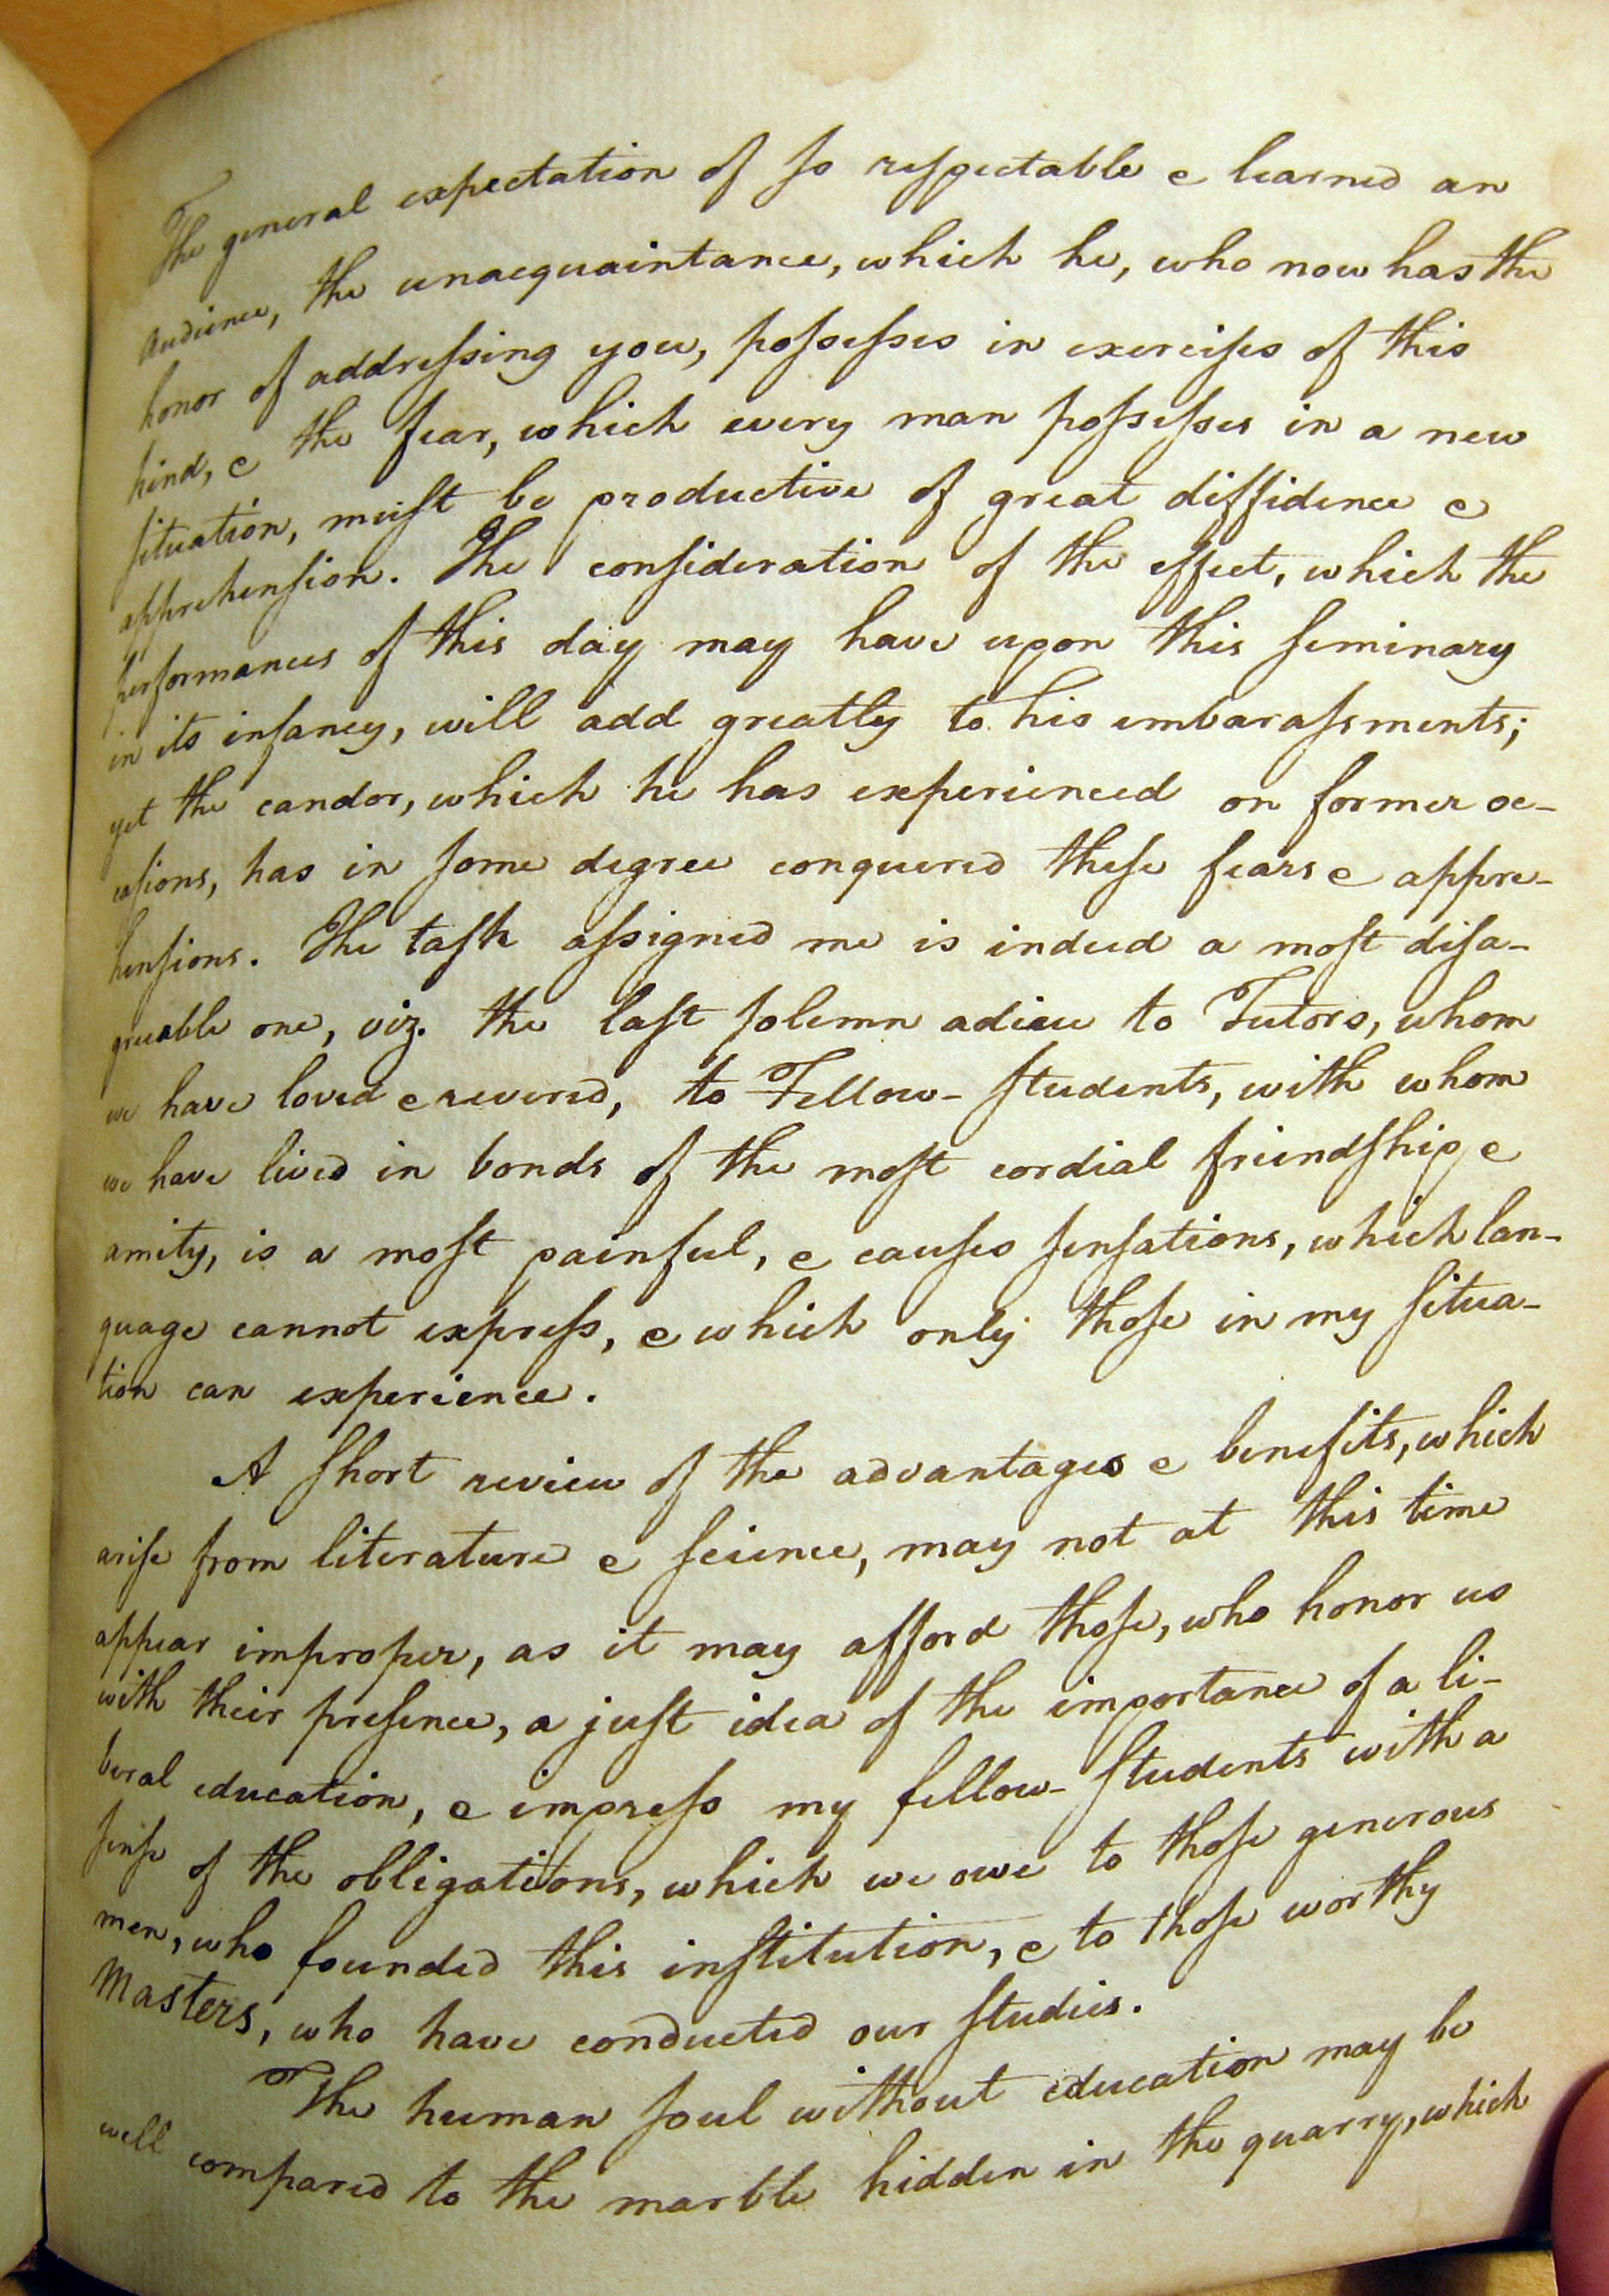 The general expectation of so respectable & learned an
audience, the unacquaintance, which he, who now has the
honor of addressing you, possesses in exercises of this
kind, & the fear, which every man possesses in a new
situation, must be productive of great diffidence &
apprehension. The consideration of the effect, which the
performances of this day may have upon this seminary
in its infancy, will add greatly to his embarassments;
yet the candor, which he has experienced on former oc-
casions, has in some degree conquered these fears & appre-
hensions. The task assigned me is indeed a most disa-
greeable one, viz. the last solemn adieu to Tutors, whom
we have loved & revered, to Fellow-students, with whom
we have lived in bonds of the most cordial friendship &
amity, is a most painful, & causes sensations, which lan-
guage cannot express, & which only those in my situa-
tion can experience.
A short review of the advantages & benefits, which
arise from literature & science, may not at this time
appear improper, as it may afford those, who honor us
with their presence, a just idea of the importance of a li-
beral education, & impress my fellow-students with a
sense of the obligations, which we owe to those generous
men, who founded this institution, & to those worthy
Masters, who have conducted our studies.
The human soul without education may be
well compared to the marble hidden in the quarry, which